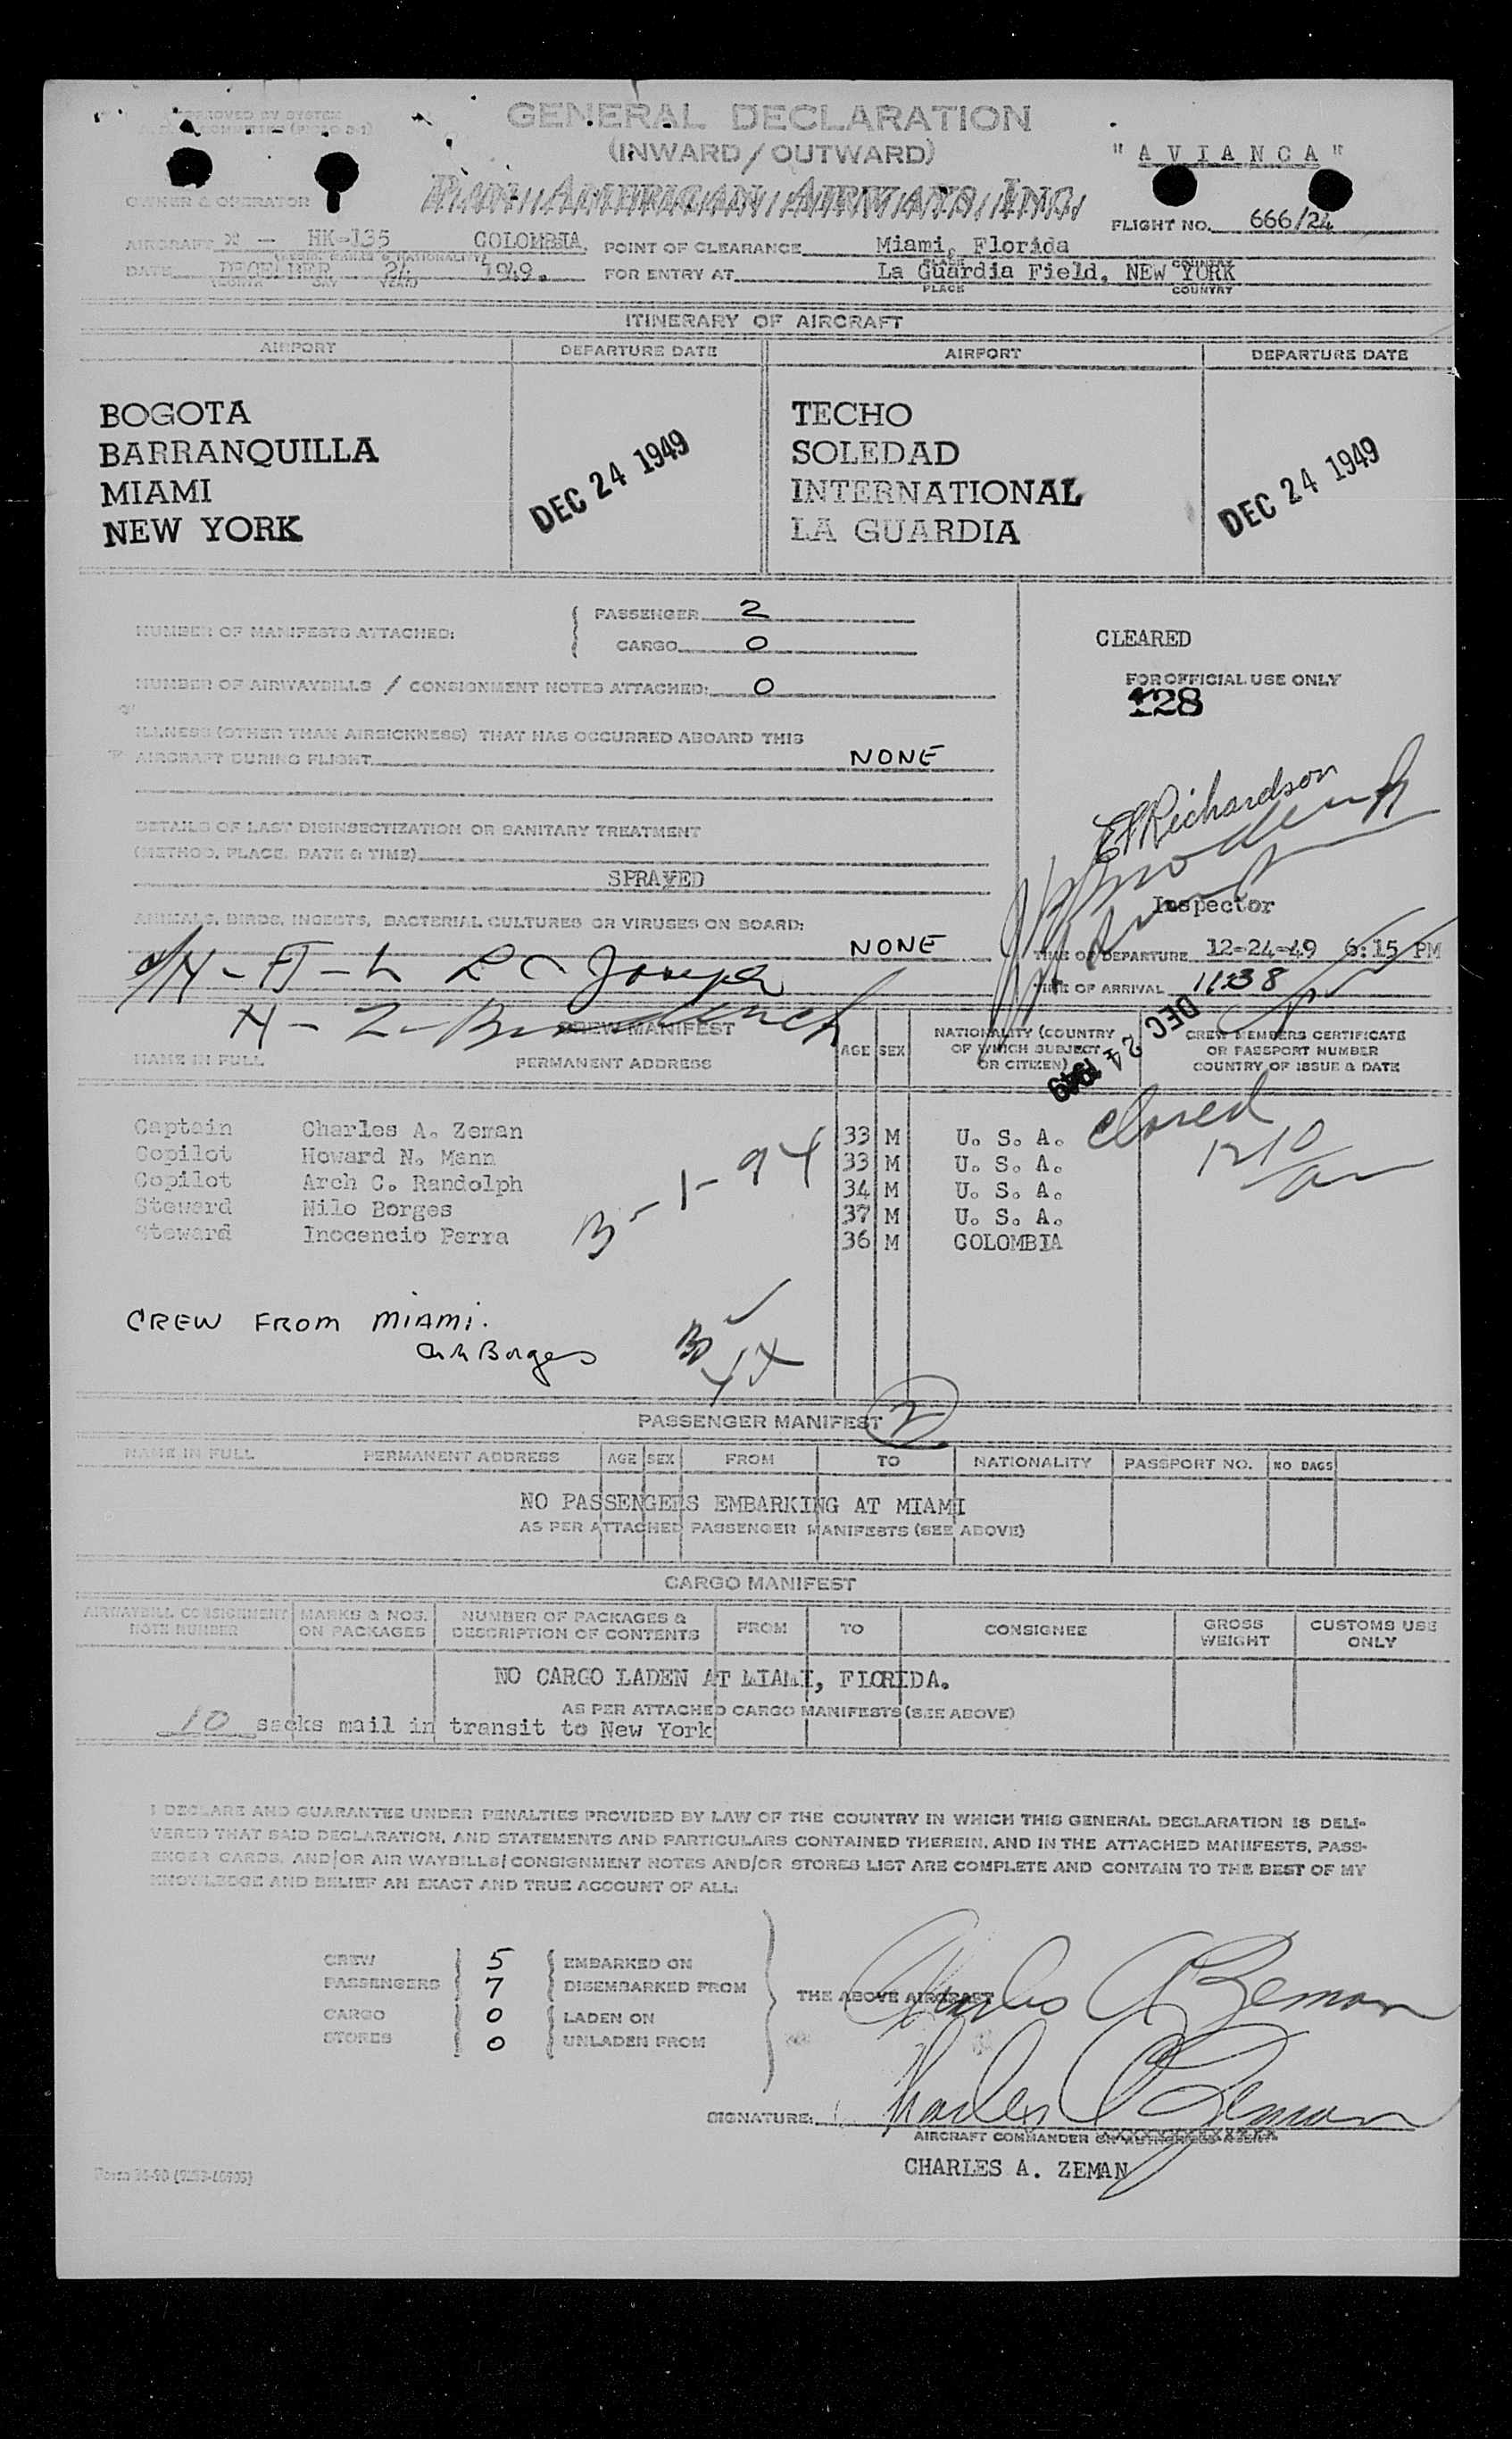 APPROVED BY SYSTEM
GENERAL DECLARATION
(INWARD/OUTWARD)
"AVIANCA"
OWNER & OPERATOR
PAN AMERICAN AIRWAYS INC.
FLIGHT NO. 666/24
AIRCRAFT HK-135 COLOMBIA. POINT OF CLEARANCE Miami, Florida
DATE DECEMBER 24 1949. FOR ENTRY AT La Guardia Field, NEW YORK
(MONTH DAY YEAR) PLACE COUNTRY
ITINERARY OF AIRCRAFT
AIRPORT DEPARTURE DATE AIRPORT DEPARTURE DATE
BOGOTA TECHO
BARRANQUILLA SOLEDAD
MIAMI DEC 24 1949 INTERNATIONAL DEC 24 1949
NEW YORK LA GUARDIA
NUMBER OF MANIFESTS ATTACHED: PASSENGER 2
CARGO 0
CLEARED
NUMBER OF AIRWAYBILLS / CONSIGNMENT NOTES ATTACHED: 0
FOR OFFICIAL USE ONLY
128
ILLNESS (OTHER THAN AIRSICKNESS) THAT HAS OCCURRED ABOARD THIS
AIRCRAFT DURING FLIGHT NONE
DETAILS OF LAST DISINSECTIZATION OR SANITARY TREATMENT
(METHOD, PLACE, DATE & TIME)
SPRAYED
E Richardson
Inspector
ANIMALS, BIRDS, INSECTS, BACTERIAL CULTURES OR VIRUSES ON BOARD:
NONE
TIME OF DEPARTURE 12-24-49 6:15 PM
TIME OF ARRIVAL 11:38
DEC 24 1949
CREW MANIFEST
NAME IN FULL PERMANENT ADDRESS AGE SEX NATIONALITY (COUNTRY OF WHICH SUBJECT OR CITIZEN) CREW MEMBERS CERTIFICATE OR PASSPORT NUMBER COUNTRY OF ISSUE & DATE
Captain Charles A. Zeman 33 M U. S. A.
Copilot Howard N. Mann 33 M U. S. A.
Copilot Arch C. Randolph 34 M U. S. A.
Steward Nilo Borges 37 M U. S. A.
Steward Inocencio Parra 36 M COLOMBIA
closed
B-1-94
CREW FROM MIAMI.
Borges
PASSENGER MANIFEST 2
NAME IN FULL PERMANENT ADDRESS AGE SEX FROM TO NATIONALITY PASSPORT NO. NO BAGS
NO PASSENGERS EMBARKING AT MIAMI
AS PER ATTACHED PASSENGER MANIFESTS (SEE ABOVE)
CARGO MANIFEST
AIRWAYBILL CONSIGNMENT NOTE NUMBER MARKS & NOS. ON PACKAGES NUMBER OF PACKAGES & DESCRIPTION OF CONTENTS FROM TO CONSIGNEE GROSS WEIGHT CUSTOMS USE ONLY
NO CARGO LADEN AT MIAMI, FLORIDA.
AS PER ATTACHED CARGO MANIFESTS (SEE ABOVE)
10 sacks mail in transit to New York
I DECLARE AND GUARANTEE UNDER PENALTIES PROVIDED BY LAW OF THE COUNTRY IN WHICH THIS GENERAL DECLARATION IS DELI-
VERED THAT SAID DECLARATION, AND STATEMENTS AND PARTICULARS CONTAINED THEREIN, AND IN THE ATTACHED MANIFESTS, PASS-
ENGER CARDS, AND/OR AIR WAYBILLS/CONSIGNMENT NOTES AND/OR STORES LIST ARE COMPLETE AND CONTAIN TO THE BEST OF MY
KNOWLEDGE AND BELIEF AN EXACT AND TRUE ACCOUNT OF ALL:
CREW 5 EMBARKED ON
PASSENGERS 7 DISEMBARKED FROM
THE ABOVE AIRCRAFT Charles A Zeman
CARGO 0 LADEN ON
STORES 0 UNLADEN FROM
SIGNATURE: Charles A Zeman
AIRCRAFT COMMANDER OR AUTHORIZED AGENT
CHARLES A. ZEMAN